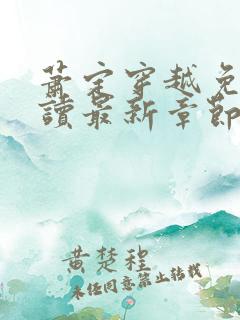 萧宋穿越免
读最新章节
黄楚程
未经同意禁止转载